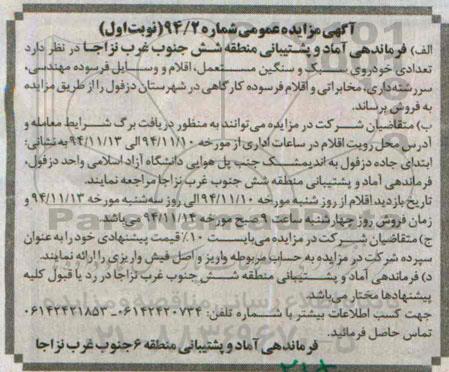 آگهی مزایده عمومی شماره ۹۴/۲ (نوبت اول)
الف) فرماندهی آماد و پشتیبانی منطقه شش جنوب غرب نزاجا در نظر دارد
تعدادی خودروی سبک و سنگین مستعمل، اقلام و وسایل فرسوده مهندسی،
سررشته‌داری، مخابراتی و اقلام فرسوده کارگاهی در شهرستان دزفول را از طریق مزایده
به فروش برساند.
ب) متقاضیان شرکت در مزایده می‌توانند به منظور دریافت برگ شرایط معامله و
آدرس محل رویت اقلام در ساعات اداری از مورخه ۹۴/۱۱/۱۰ الی ۹۴/۱۱/۱۳ به نشانی:
ابتدای جاده دزفول به اندیمشک جنب پل هوایی دانشگاه آزاد اسلامی واحد دزفول،
فرماندهی آماد و پشتیبانی منطقه شش جنوب غرب نزاجا مراجعه نمایند.
تاریخ بازدید اقلام از روز شنبه مورخه ۹۴/۱۱/۱۰ الی روز سه‌شنبه مورخه ۹۴/۱۱/۱۳ و
زمان فروش روز چهارشنبه ساعت ۹ صبح مورخه ۹۴/۱۱/۱۴ می‌باشد.
ج) متقاضیان شرکت در مزایده می‌بایست ۱۰٪ قیمت پیشنهادی خود را به عنوان
سپرده شرکت در مزایده به حساب مربوطه واریز و اصل فیش واریزی را ارائه نمایند.
د) فرماندهی آماد و پشتیبانی منطقه شش جنوب غرب نزاجا در رد یا قبول کلیه
پیشنهادها مختار می‌باشد.
جهت کسب اطلاعات بیشتر با شماره تلفن: ۰۶۱۴۲۴۲۰۷۳۴-۰۶۱۴۲۴۲۱۸۵۳
تماس حاصل فرمائید.
فرماندهی آماد و پشتیبانی منطقه ۶ جنوب غرب نزاجا